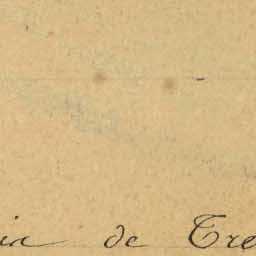 ia de Tre